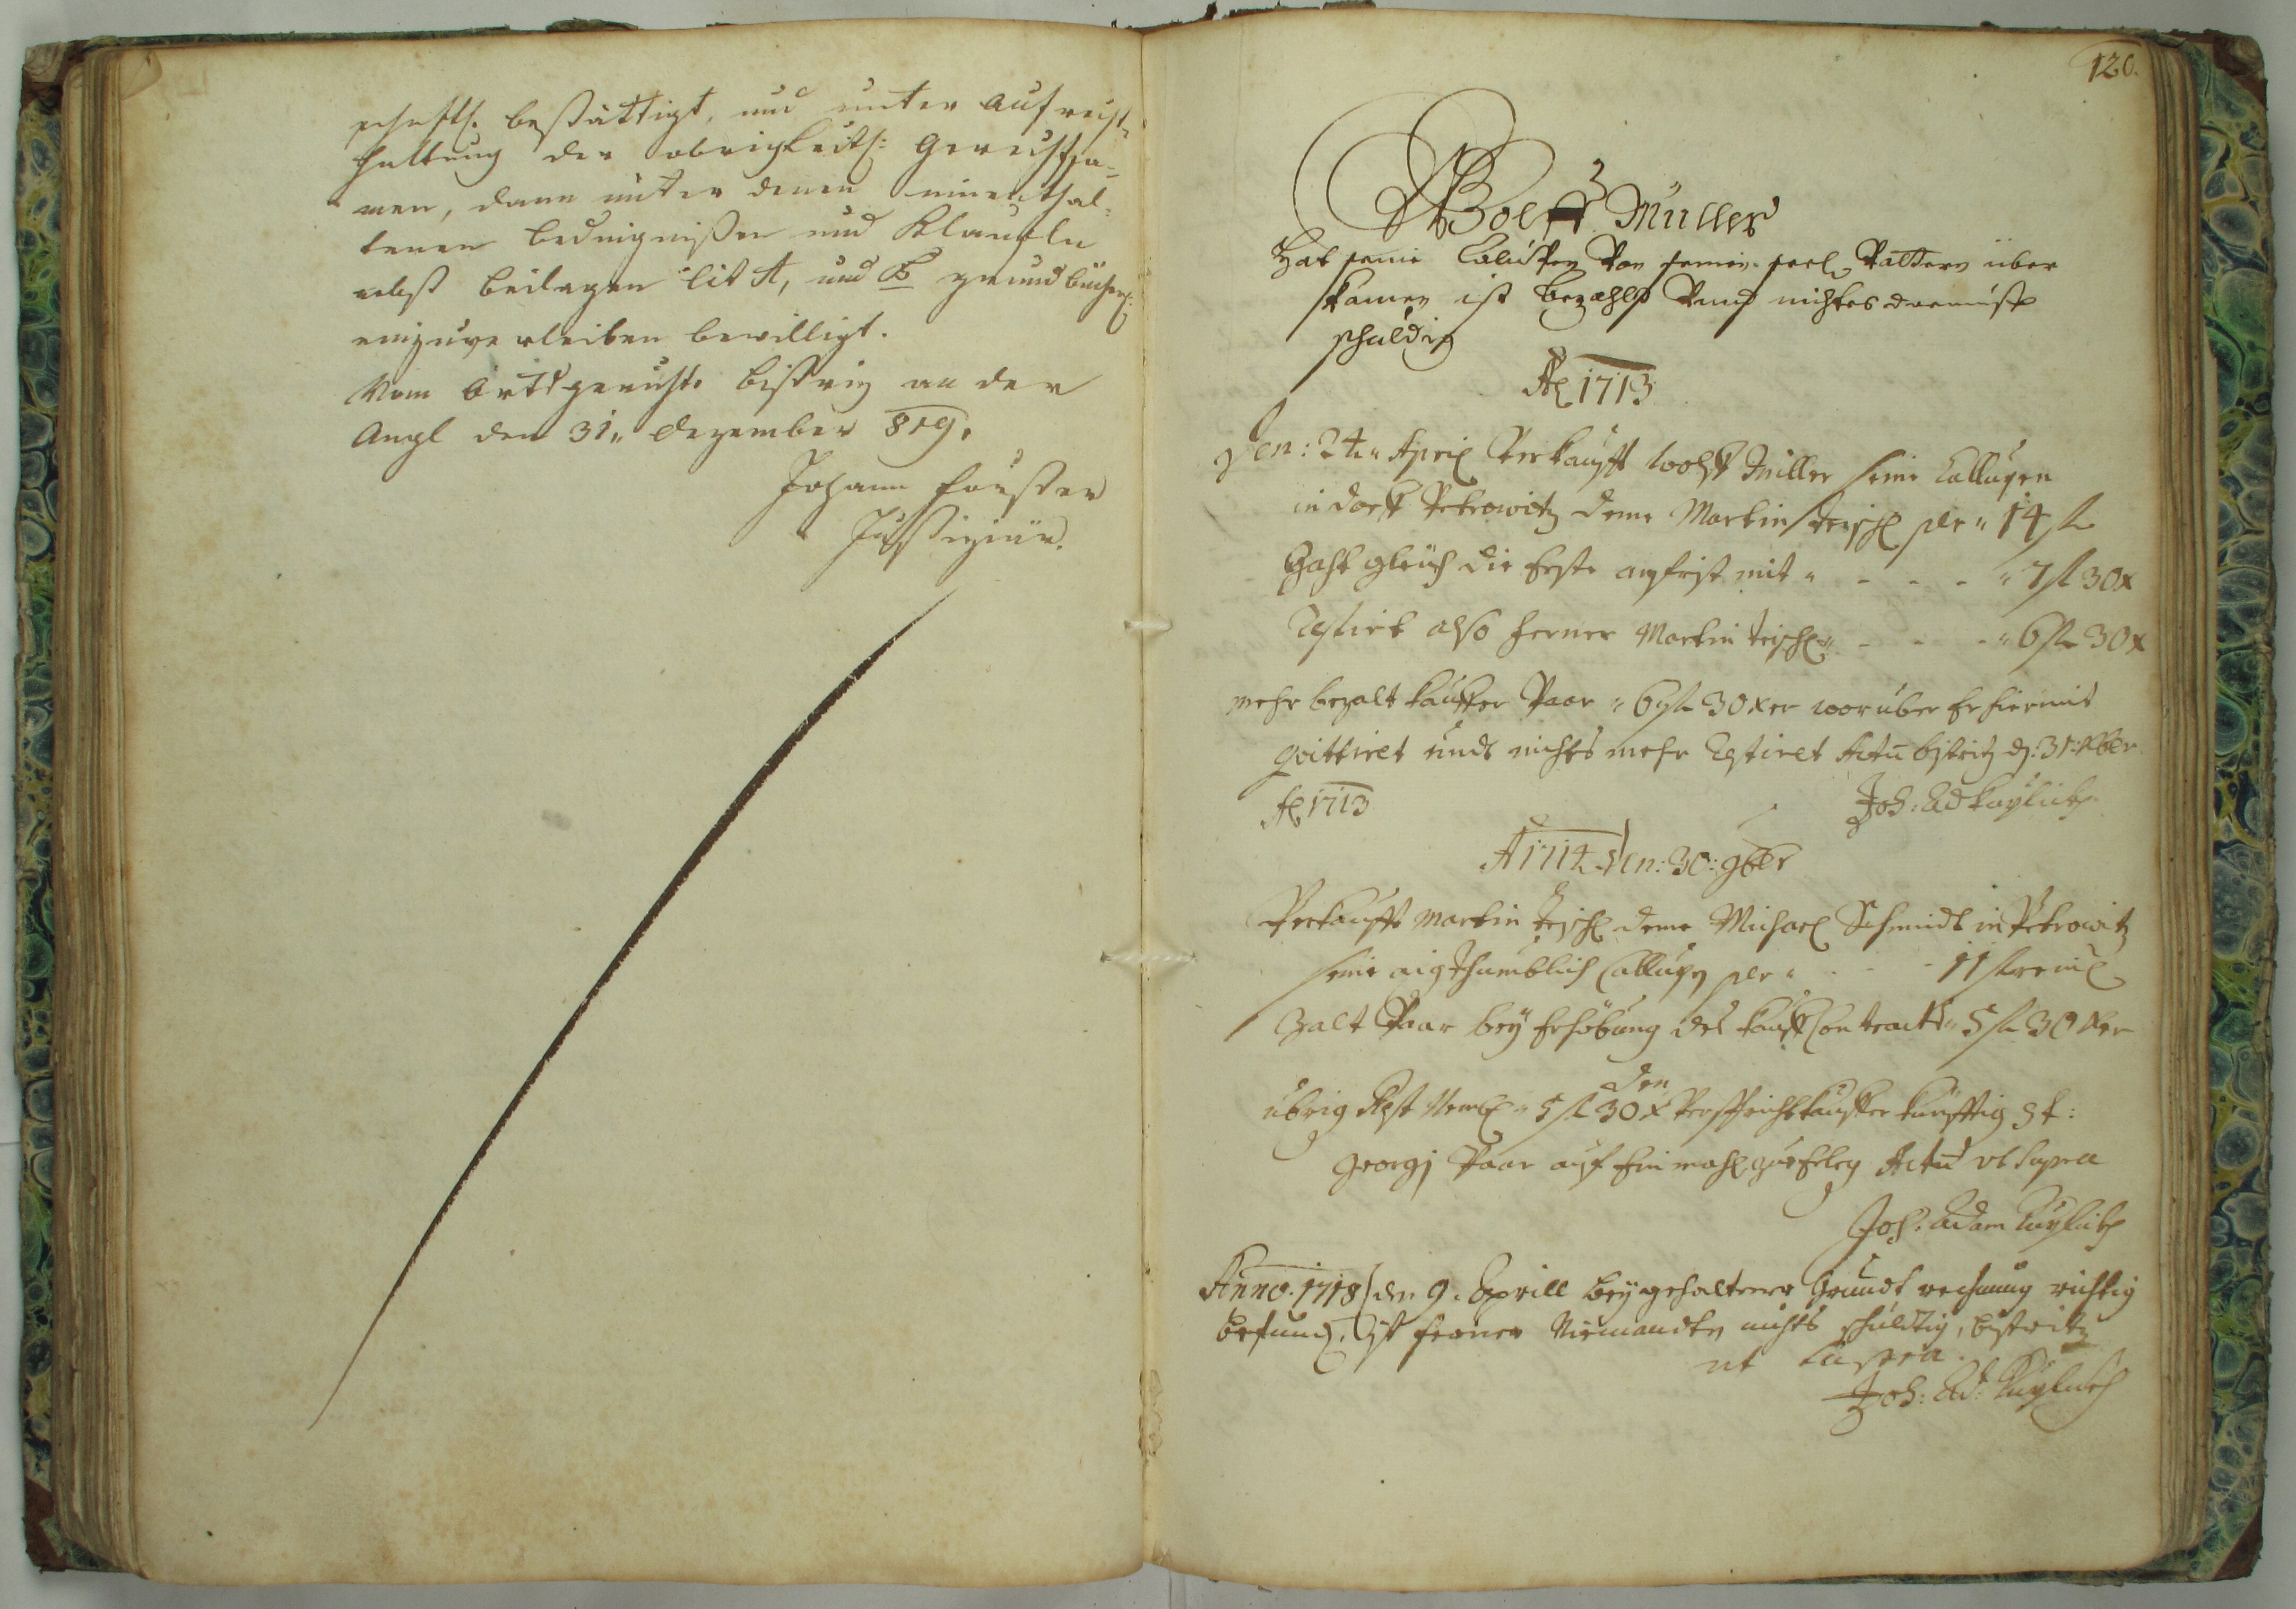 schaftl. bestättigt, und unter Aufrecht-
haltung der obrigkeitl: Gerechtsa-
men, dann unter denen einenthal-
tenen Bedingnißen und Klauseln
nebst Beilagen lit A, und B grundbücherl:
einzuverleiben bewilligt.
Vom Ortsgerichte Bistritz an der
Angl den 31" Dezember 819.
Johann
Justiziär.
120.
Wolff Müller
Hat seine Calupen Von seinen seel. Vattern über
kamen ist bezahlt Vnd nichtes daraust
schuldig
Ao 1713
Den: 24" April Verkaufft Wolff Müller seine Callupen
in dorff Petrowitz deme Martin Teischl per " 14 fl
Zahlt gleich die Erste angfrist mit " - - - " 7 fl 30 x
Restiert also ferner Martin Teischl " - - - " 6 fl 30 x
mehr bezalt kauffer Paar " 6 fl 30 xer worüber Er hiermit
quittiret undt nichts mehr Restiret Actu Bistritz d: 31: Xber
Ao 1713
Joh: Ad
A 1714 Den: 30: 9ber
Verkaufft Martin Teischl deme Michael Schmidt in Petrowitz
seine aigthumblich Callupen per " - - - 11 fl reinl
Zalt Paar bey Erhöbung des kauff Contracts " 5 fl 30 xer
übrig Rest Neml " 5 fl 30 x den Verspricht kauffer künfftig St:
Georgj Paar auf Einmahl zuerleg Actu vt Supra
Joh: Adam
Anno. 1718 den 9. Aprill bey gehaltener Grundt rechnung richtig
befund, Ist ferner Niemandten nichts schuldig, Bistritz
ut Supra.
Joh: Ad: